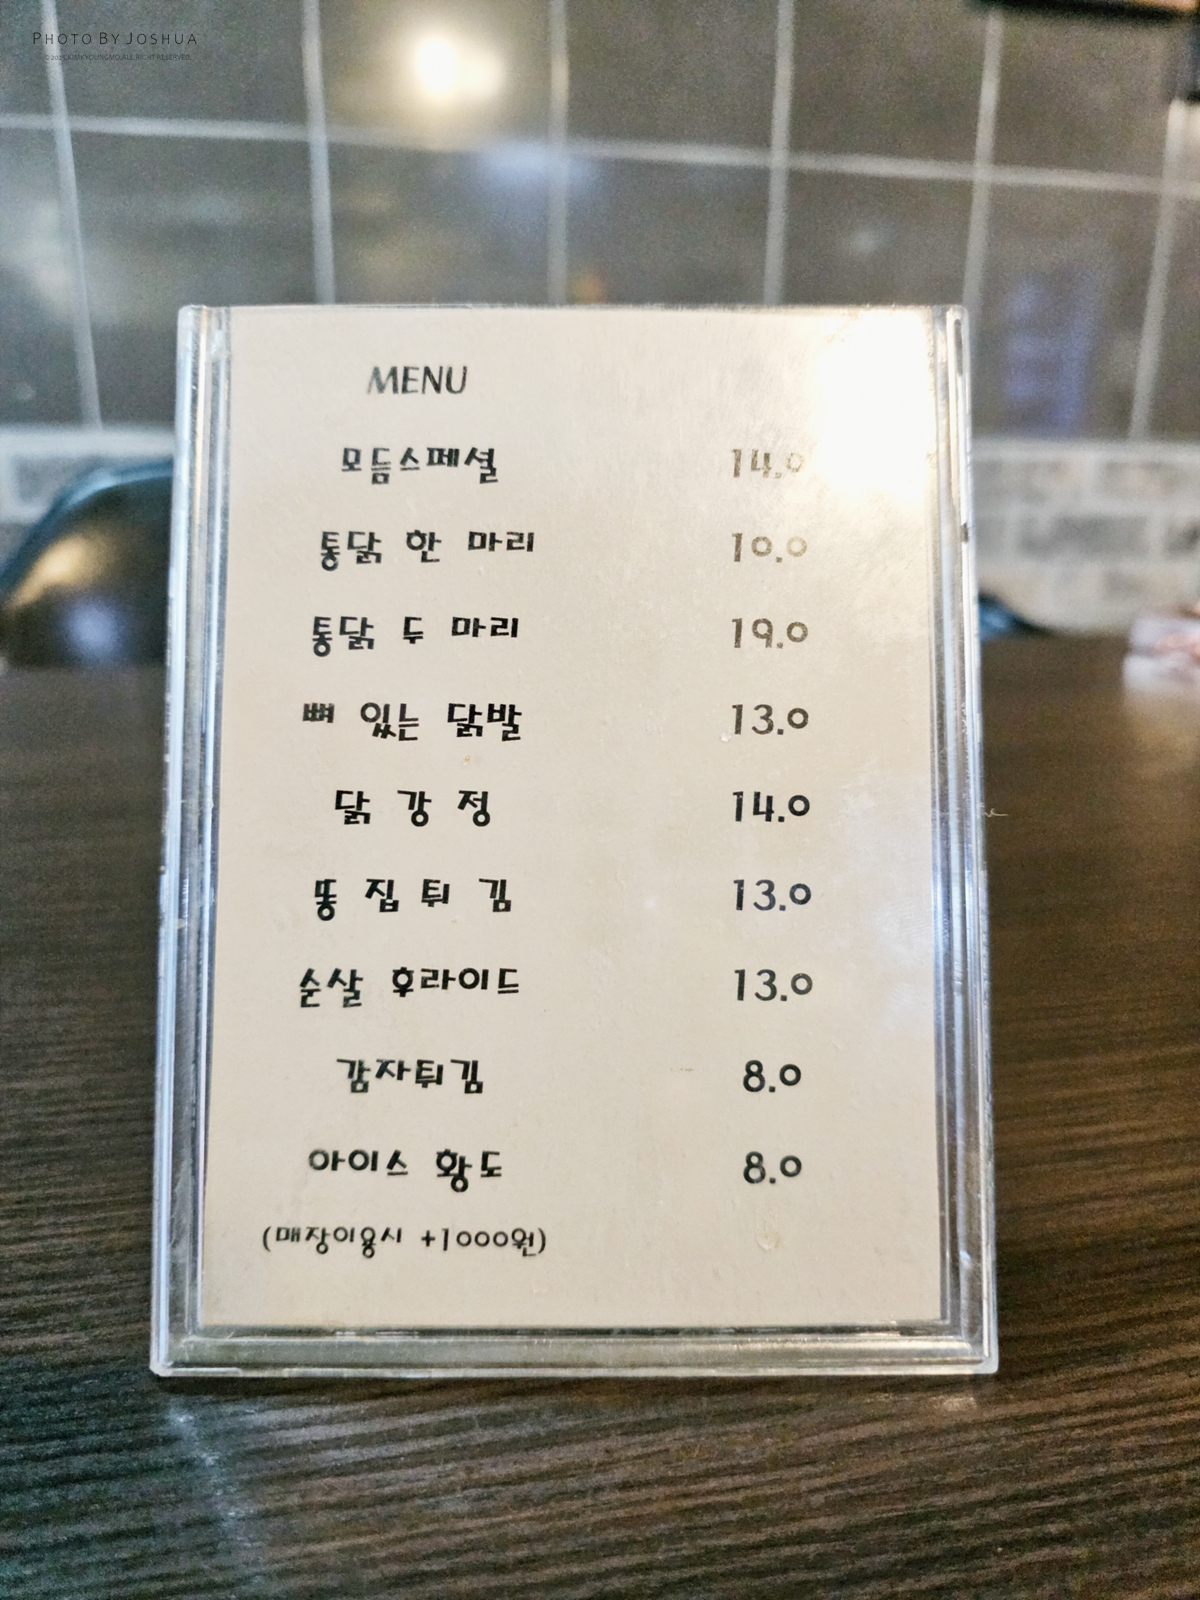 PHOTO BY JOSHUA
MENU
모듬스페셜 14.0
통닭 한 마리 10.0
통닭 두 마리 19.0
뼈 있는 닭발 13.0
닭 강 정 14.0
똥 집 튀 김 13.0
순살 후라이드 13.0
감자튀김 8.0
아이스 황도 8.0
(매장이용시 +1000원)